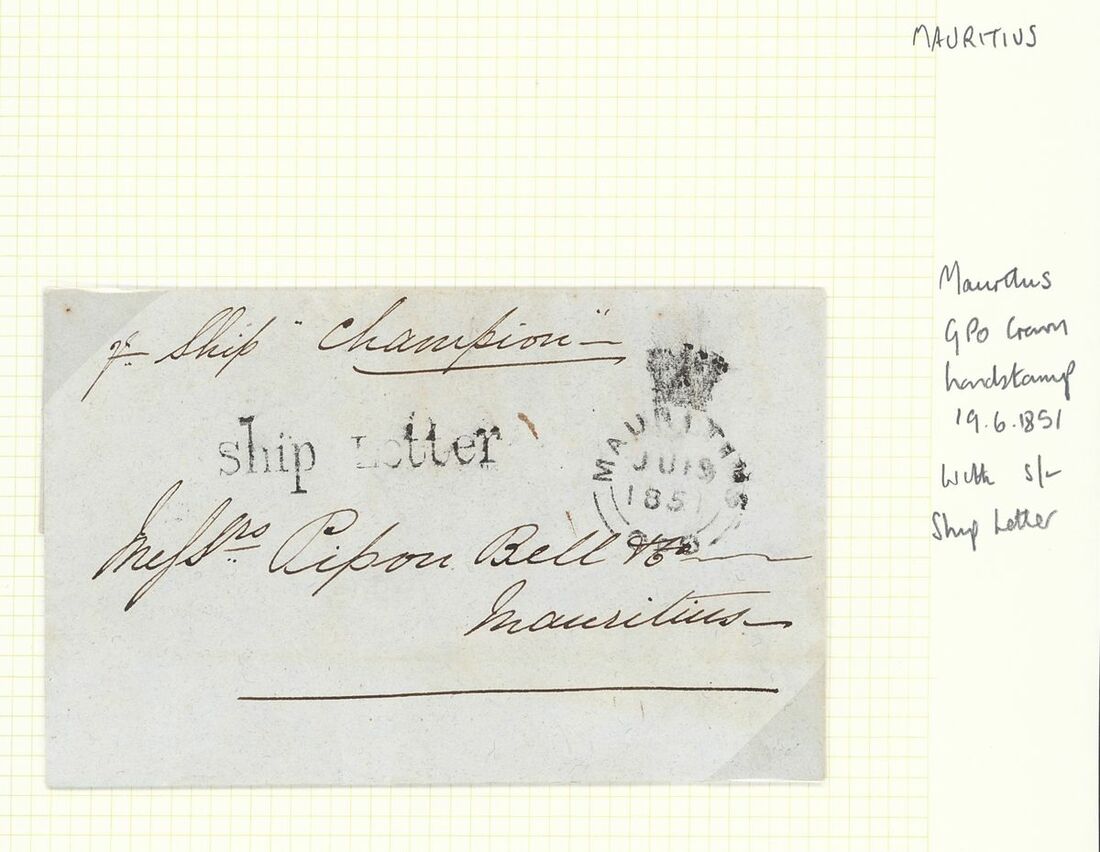 MAURITIUS
pr Ship "Champion"
Ship Letter
MAURITIUS
JU 19
1851
Messrs Pipon Bell & Co
Mauritius
Mauritius
GPO Crown
handstamp
19.6.1851
with s/-
Ship Letter